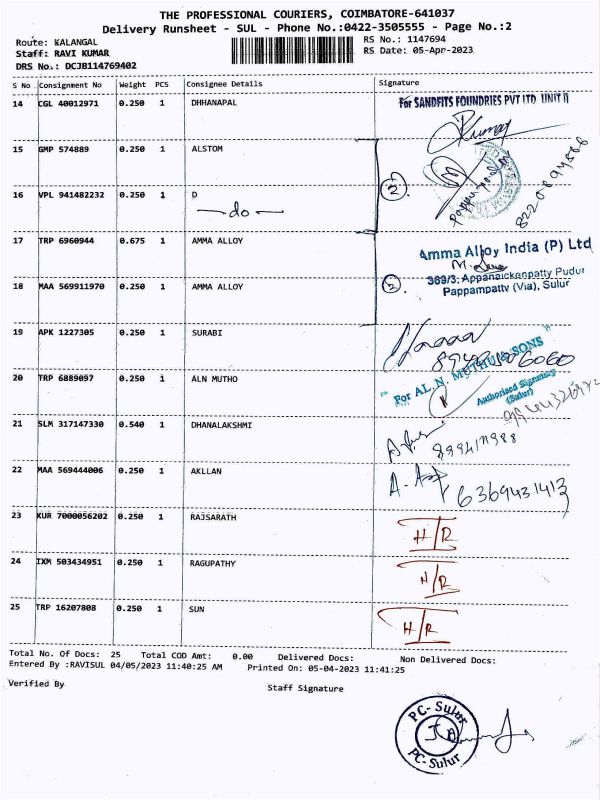 THE PROFESSIONAL COURIERS, COIMBATORE-641037
Delivery Runsheet - SUL - Phone No.:0422-3505555 - Page No.:2
Route: KALANGAL
RS No.: 1147694
Staff: RAVI KUMAR
RS Date: 05-Apr-2023
DRS No.: DCJB114769402
S No Consignment No Weight PCS Consignee Details Signature
14 CGL 40012971 0.250 1 DHHANAPAL For SANDFITS FOUNDRIES PVT LTD UNIT II
15 GMP 574889 0.250 1 ALSTOM
16 VPL 941482232 0.250 1 D
do
2
17 TRP 6960944 0.675 1 AMMA ALLOY
Amma Alloy India (P) Ltd
369/3, Appanaickenpatty Pudur
Pappampatty (Via), Sulur
18 MAA 569911970 0.250 1 AMMA ALLOY
2
19 APK 1227305 0.250 1 SURABI
20 TRP 6889097 0.250 1 ALN MUTHO
For AL. N. MUTHU & SONS
Authorised Signatory
(Sulur)
21 SLM 317147330 0.540 1 DHANALAKSHMI
22 MAA 569444006 0.250 1 AKLLAN
6369431413
23 KUR 7000056202 0.250 1 RAJSARATH H/R
24 IXM 503434951 0.250 1 RAGUPATHY H/R
25 TRP 16207808 0.250 1 SUN H/R
Total No. Of Docs: 25 Total COD Amt: 0.00 Delivered Docs: Non Delivered Docs:
Entered By :RAVISUL 04/05/2023 11:40:25 AM Printed On: 05-04-2023 11:41:25
Verified By Staff Signature
PC- Sulur
PC- Sulur